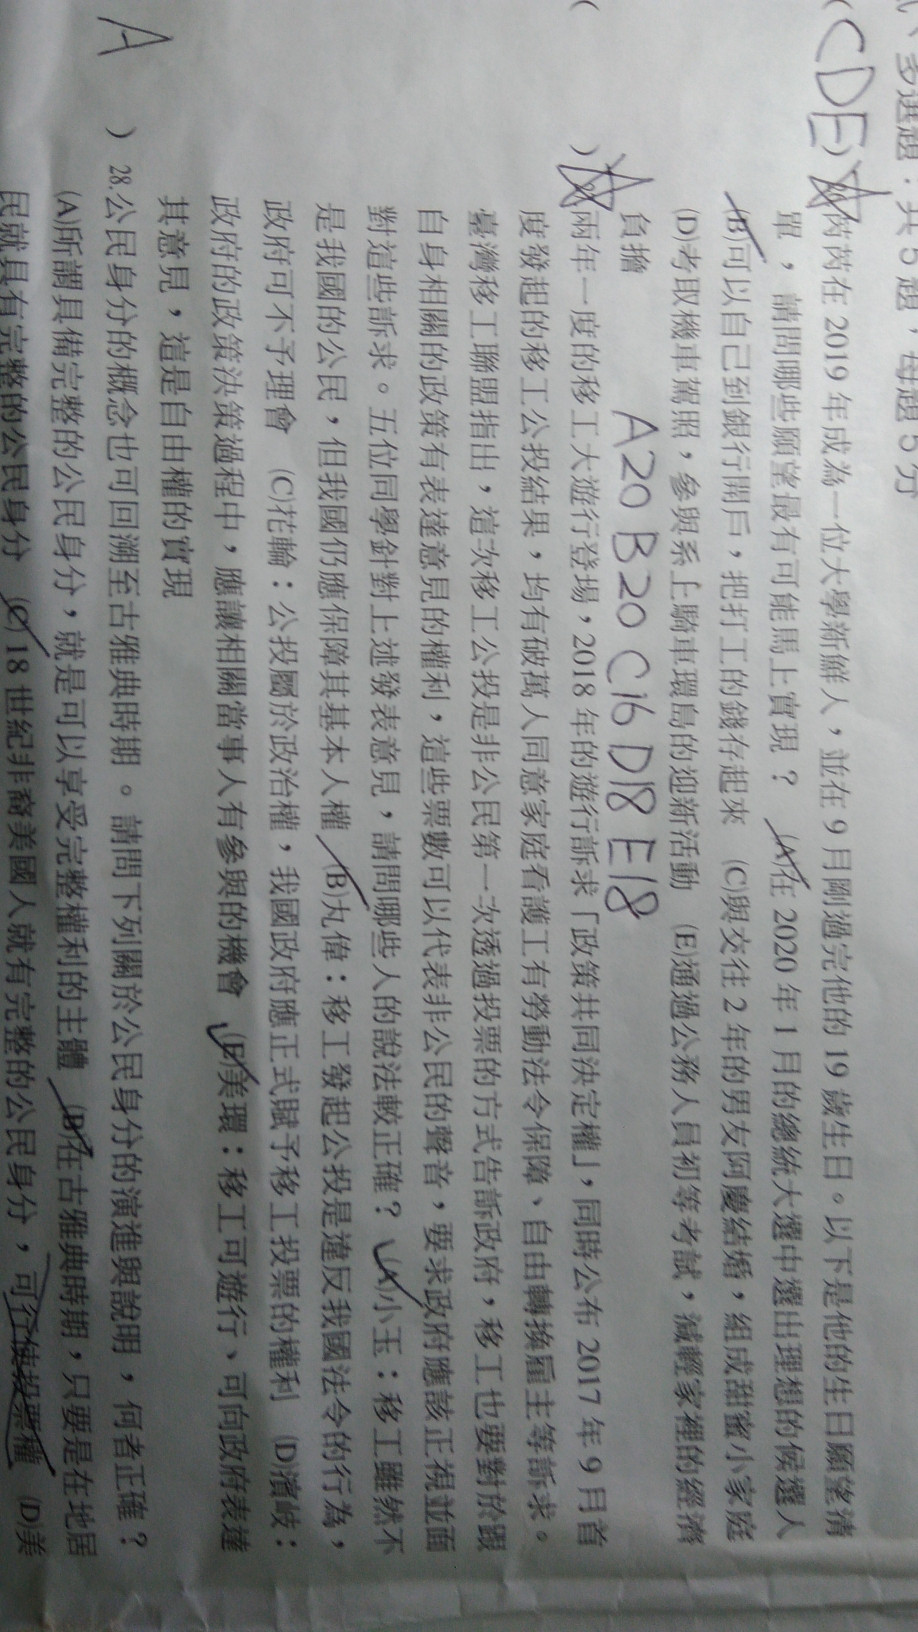 、多選題：共5題，每題5分
(CDE) 芮芮在 2019 年成為一位大學新鮮人，並在 9 月剛過完他的 19 歲生日。以下是他的生日願望清
單，請問哪些願望最有可能馬上實現？ (A)在 2020 年 1 月的總統大選中選出理想的候選人
(B)可以自己到銀行開戶，把打工的錢存起來 (C)與交往 2 年的男友阿慶結婚，組成甜蜜小家庭
(D)考取機車駕照，參與系上騎車環島的迎新活動 (E)通過公務人員初等考試，減輕家裡的經濟
負擔
A20 B20 C16 D18 E18
( ) 兩年一度的移工大遊行登場，2018 年的遊行訴求「政策共同決定權」，同時公布 2017 年 9 月首
度發起的移工公投結果，均有破萬人同意家庭看護工有勞動法令保障、自由轉換雇主等訴求。
臺灣移工聯盟指出，這次移工公投是非公民第一次透過投票的方式告訴政府，移工也要對於跟
自身相關的政策有表達意見的權利，這些票數可以代表非公民的聲音，要求政府應該正視並面
對這些訴求。五位同學針對上述發表意見，請問哪些人的說法較正確？ (A)小玉：移工雖然不
是我國的公民，但我國仍應保障其基本人權 (B)丸偉：移工發起公投是違反我國法令的行為，
政府可不予理會 (C)花輪：公投屬於政治權，我國政府應正式賦予移工投票的權利 (D)濱崎：
政府的政策決策過程中，應讓相關當事人有參與的機會 (E)美環：移工可遊行、可向政府表達
其意見，這是自由權的實現
A ) 28.公民身分的概念也可回溯至古雅典時期。請問下列關於公民身分的演進與說明，何者正確？
(A)所謂具備完整的公民身分，就是可以享受完整權利的主體 (B)在古雅典時期，只要是在地居
民就具有完整的公民身分 (C)18 世紀非裔美國人就有完整的公民身分，可行使投票權 (D)美